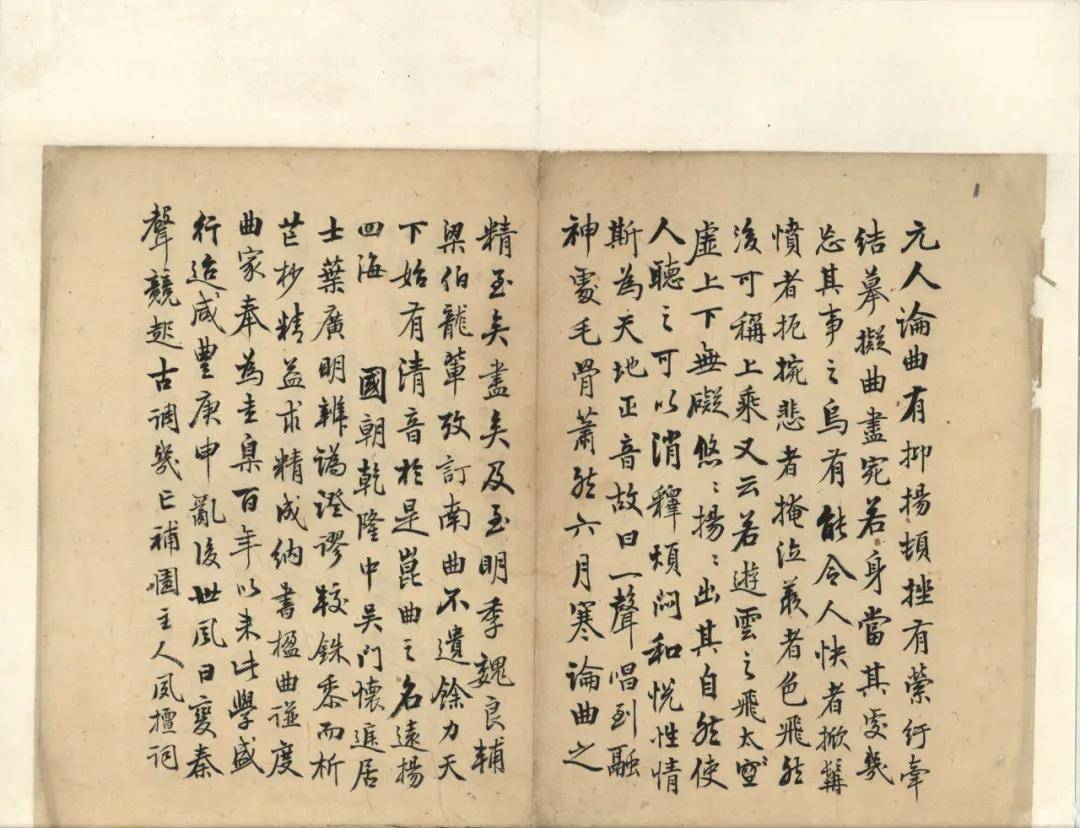 元人論曲有抑揚頓挫有縈紆牽
結摹擬曲盡宛若身當其處幾
忘其事之烏有能令人快者掀髯
憤者扼捥悲者掩泣羨者色飛然
後可稱上乘又云若遊雲之飛太空
虛上下無礙悠〻揚〻出其自然使
人聽之可以消釋煩悶和悅性情
斯為天地正音故曰一聲唱到融
神處毛骨蕭然六月寒論曲之
精至矣盡矣及至明季魏良輔
梁伯龍輩攷訂南曲不遺餘力天
下始有清音於是崑曲之名遠揚
四海 國朝乾隆中吳門懷庭居
士葉廣明辨譌證謬較銖黍而析
芒杪精益求精成納書楹曲譜度
曲家奉為圭臬百年以來此學盛
行迨咸豐庚申亂後世風日變秦
聲競起古調幾亡補園主人風擅詞